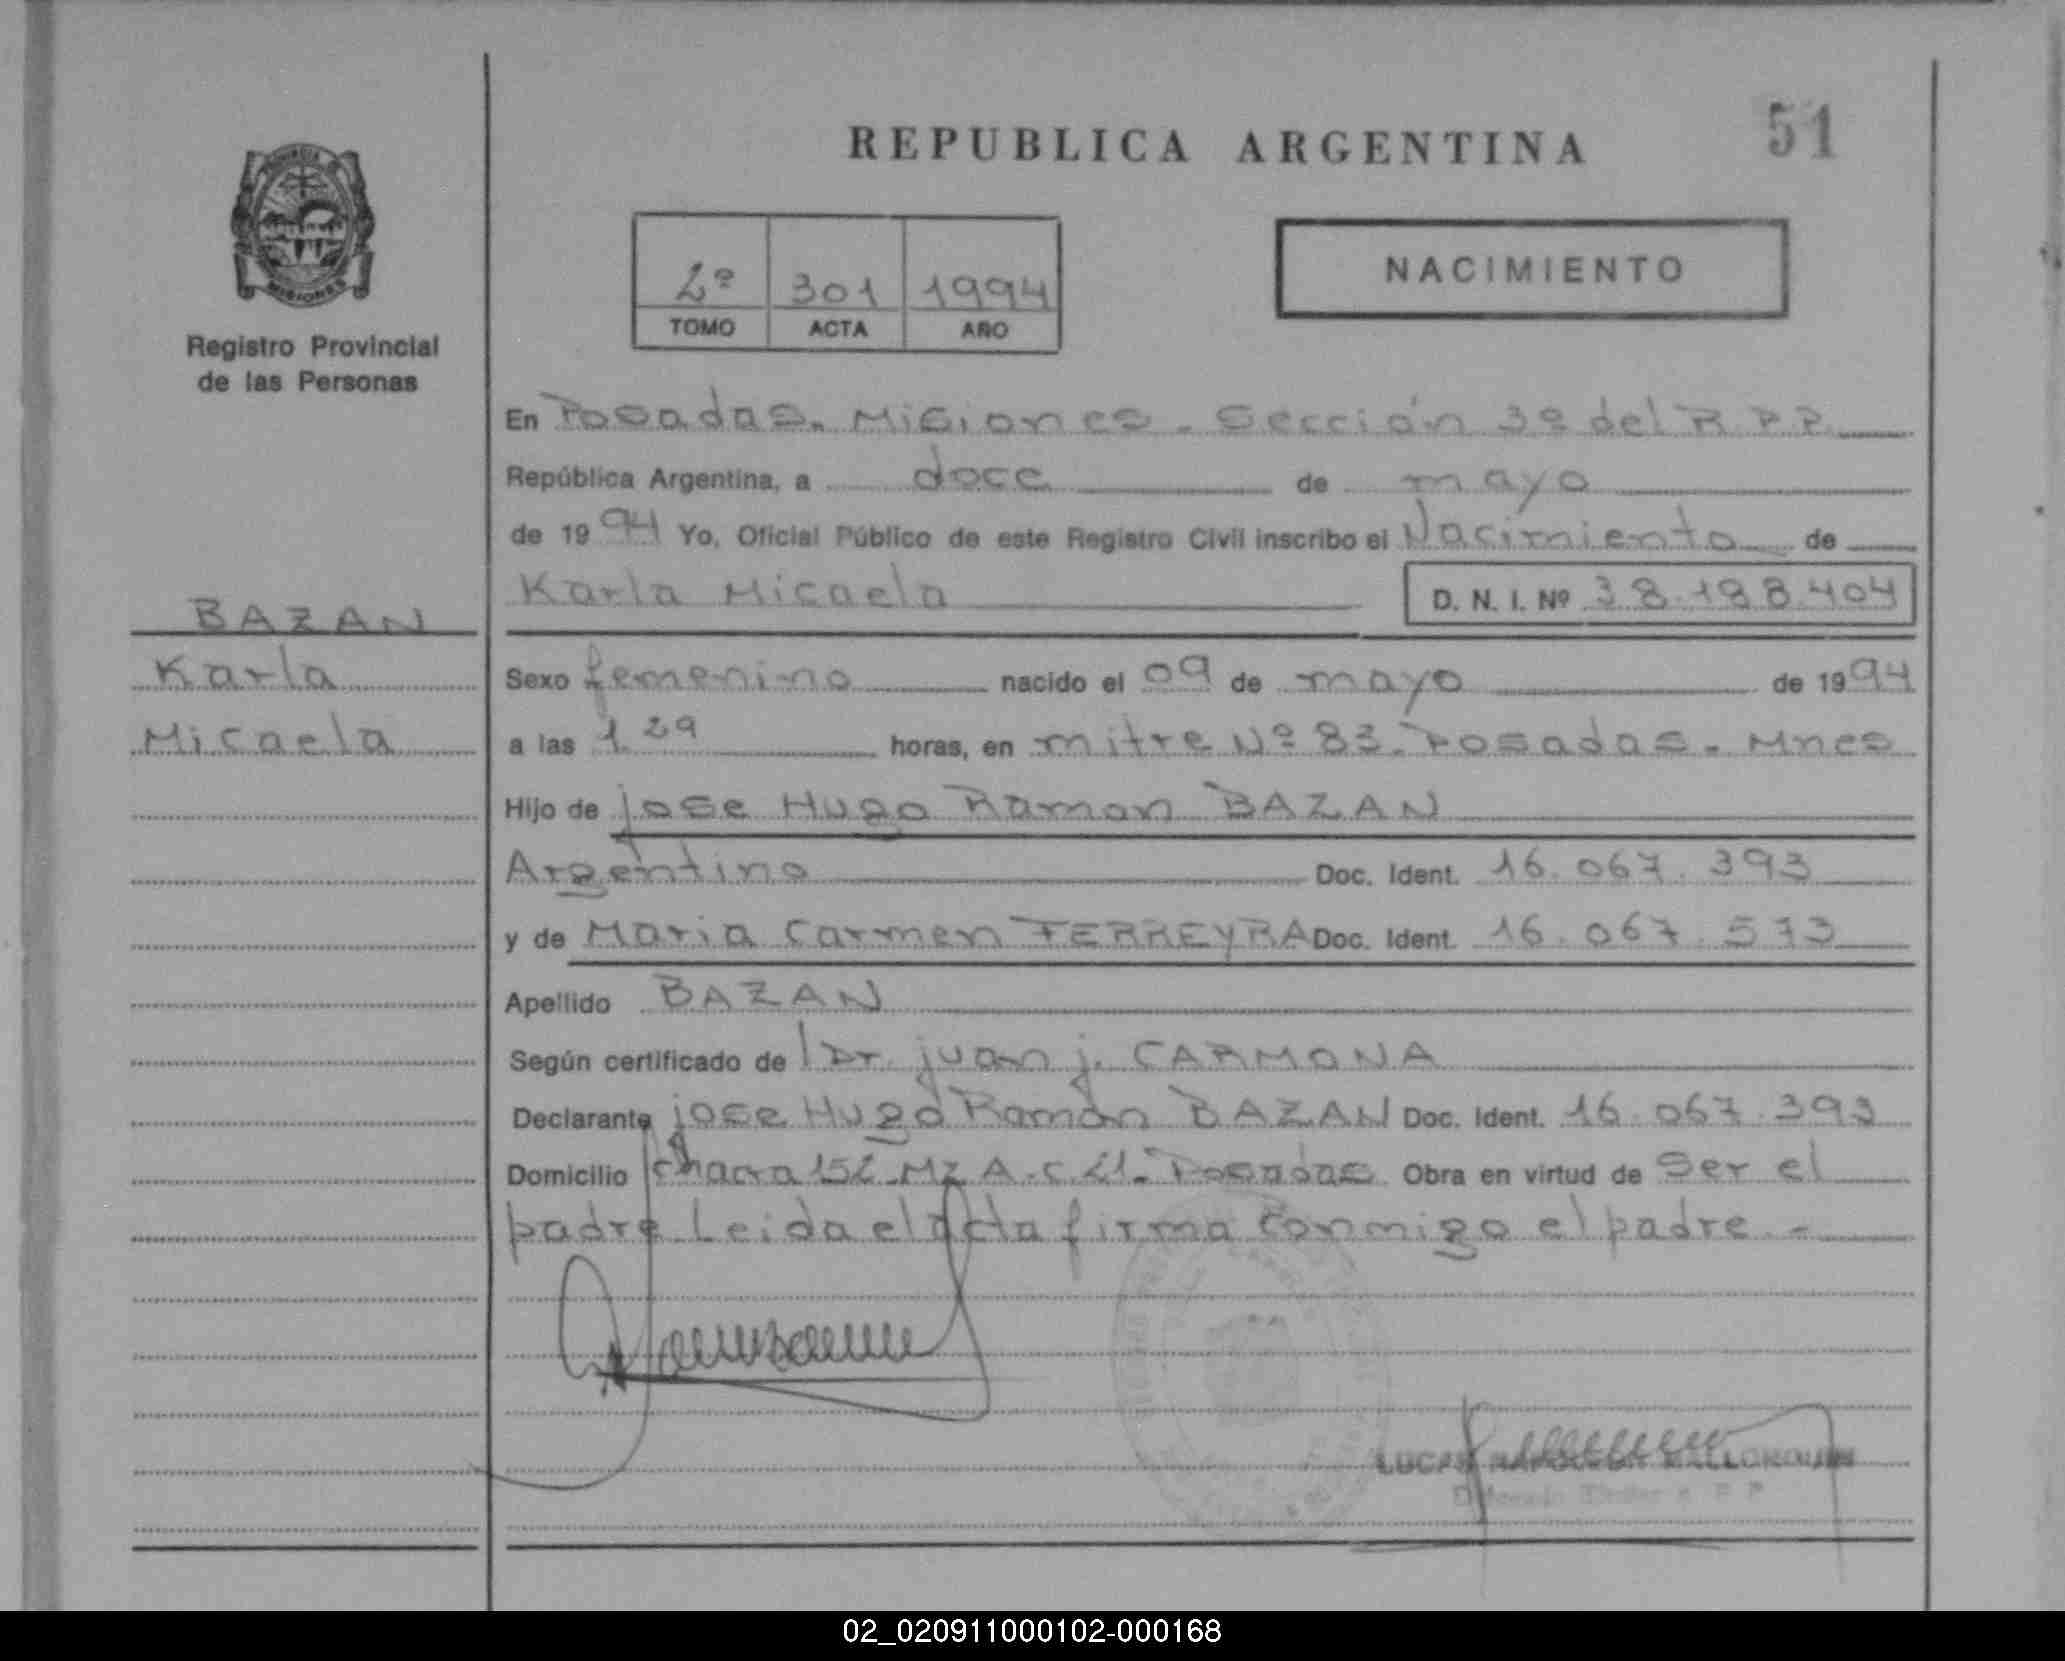 REPUBLICA ARGENTINA
51
PROVINCIA DE
MISIONES
Registro Provincial
de las Personas
2º 301 1994
TOMO ACTA AÑO
NACIMIENTO
En Posadas. Misiones. Sección 3º del R.P.P.
República Argentina, a doce de mayo
de 1994 Yo, Oficial Público de este Registro Civil inscribo el Nacimiento de
Karla Micaela D. N. I. Nº 38.188.404
BAZAN
Karla
Micaela
Sexo femenino nacido el 09 de mayo de 1994
a las 1.29 horas, en mitre Nº 83. Posadas. Mnes
Hijo de jose Hugo Ramon BAZAN
Argentino Doc. Ident. 16.067.393
y de Maria Carmen FERREYRA Doc. Ident. 16.067.573
Apellido BAZAN
Según certificado de l Dr. juan j. CARMONA
Declarante jose Hugo Ramón BAZAN Doc. Ident. 16.067.393
Domicilio chacra 152 Mz A. c. 21. Posadas Obra en virtud de Ser el
padre Leida el acta firma conmigo el padre.-
LUCAS
02_020911000102-000168